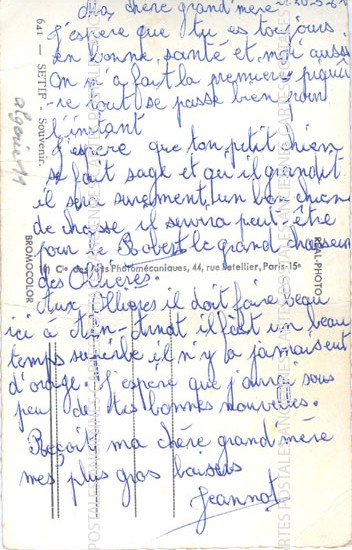 Ma chère grand'mère
J'espère que tu es toujours
en bonne santé et moi aussi
On m'a fait la première piqûre
tout se passe bien pour
l'instant
J'espère que ton petit chien
se fait sage et qu'il grandit
il sera surement un bon chien
de chasse il servira peut-être
pour le Robert le grand chasseur
des Ollières.
Aux Ollières il doit faire beau
ici à Aïn-Arnat il fait un beau
temps superbe il n'y a jamais eut
d'orage. J'espère que j'aurai sous
peu de tes bonnes nouvelles.
Reçoit ma chère grand'mère
mes plus gros baisers
Jeannot
641 — SETIF - Souvenir
algérie
BROMOCOLOR
Cie des Arts Photomécaniques, 44, rue Letellier, Paris-15e
REAL-PHOTO
CARTES POSTALES ANCIENNES